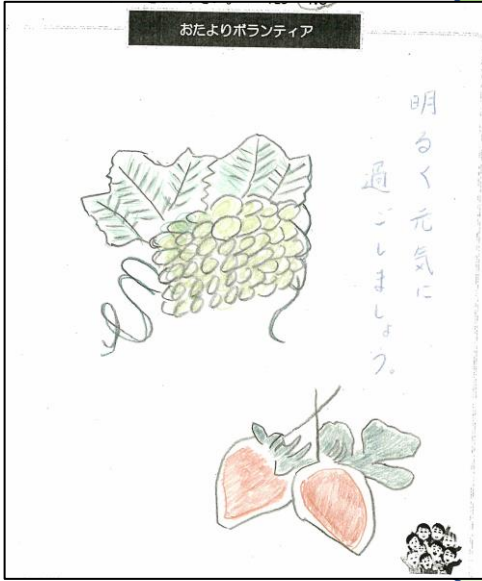 おたよりボランティア
明るく元気に
過ごしましょう。